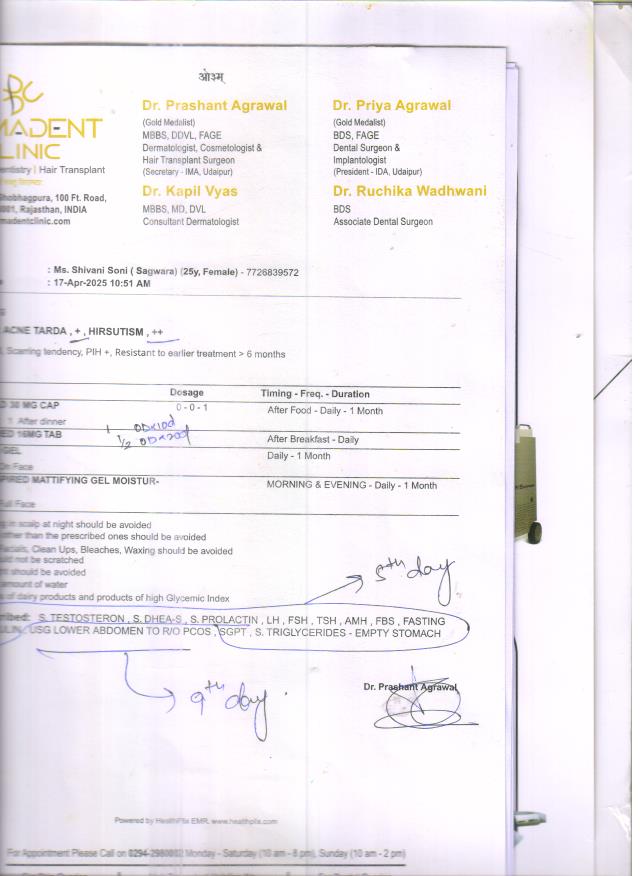 ओ३म्
Dr. Prashant Agrawal
(Gold Medalist)
MBBS, DDVL, FAGE
Dermatologist, Cosmetologist &
Hair Transplant Surgeon
(Secretary - IMA, Udaipur)
Dr. Priya Agrawal
(Gold Medalist)
BDS, FAGE
Dental Surgeon &
Implantologist
(President - IDA, Udaipur)
Dr. Kapil Vyas
MBBS, MD, DVL
Consultant Dermatologist
Dr. Ruchika Wadhwani
BDS
Associate Dental Surgeon
MADENT
LINIC
entistry | Hair Transplant
Shobhagpura, 100 Ft. Road,
001, Rajasthan, INDIA
madentclinic.com
: Ms. Shivani Soni ( Sagwara) (25y, Female) - 7726839572
: 17-Apr-2025 10:51 AM
ACNE TARDA , + , HIRSUTISM , ++
, Scarring tendency, PIH +, Resistant to earlier treatment > 6 months
Dosage Timing - Freq. - Duration
D 30 MG CAP 0 - 0 - 1 After Food - Daily - 1 Month
1 After dinner
1 OD x 10d
ED 16MG TAB 1/2 OD x 20d After Breakfast - Daily
GEL Daily - 1 Month
On Face
PIRED MATTIFYING GEL MOISTUR- MORNING & EVENING - Daily - 1 Month
Full Face
g in scalp at night should be avoided
other than the prescribed ones should be avoided
Facials, Clean Ups, Bleaches, Waxing should be avoided
uld not be scratched
t should be avoided
amount of water
s of dairy products and products of high Glycemic Index
5th day
ribed: S. TESTOSTERON , S. DHEA-S , S. PROLACTIN , LH , FSH , TSH , AMH , FBS , FASTING
ULIN, USG LOWER ABDOMEN TO R/O PCOS , SGPT , S. TRIGLYCERIDES - EMPTY STOMACH
9th day
Dr. Prashant Agrawal
Powered by HealthPlix EMR. www.healthplix.com
For Appointment Please Call on 0294-2980002 Monday - Saturday (10 am - 8 pm), Sunday (10 am - 2 pm)